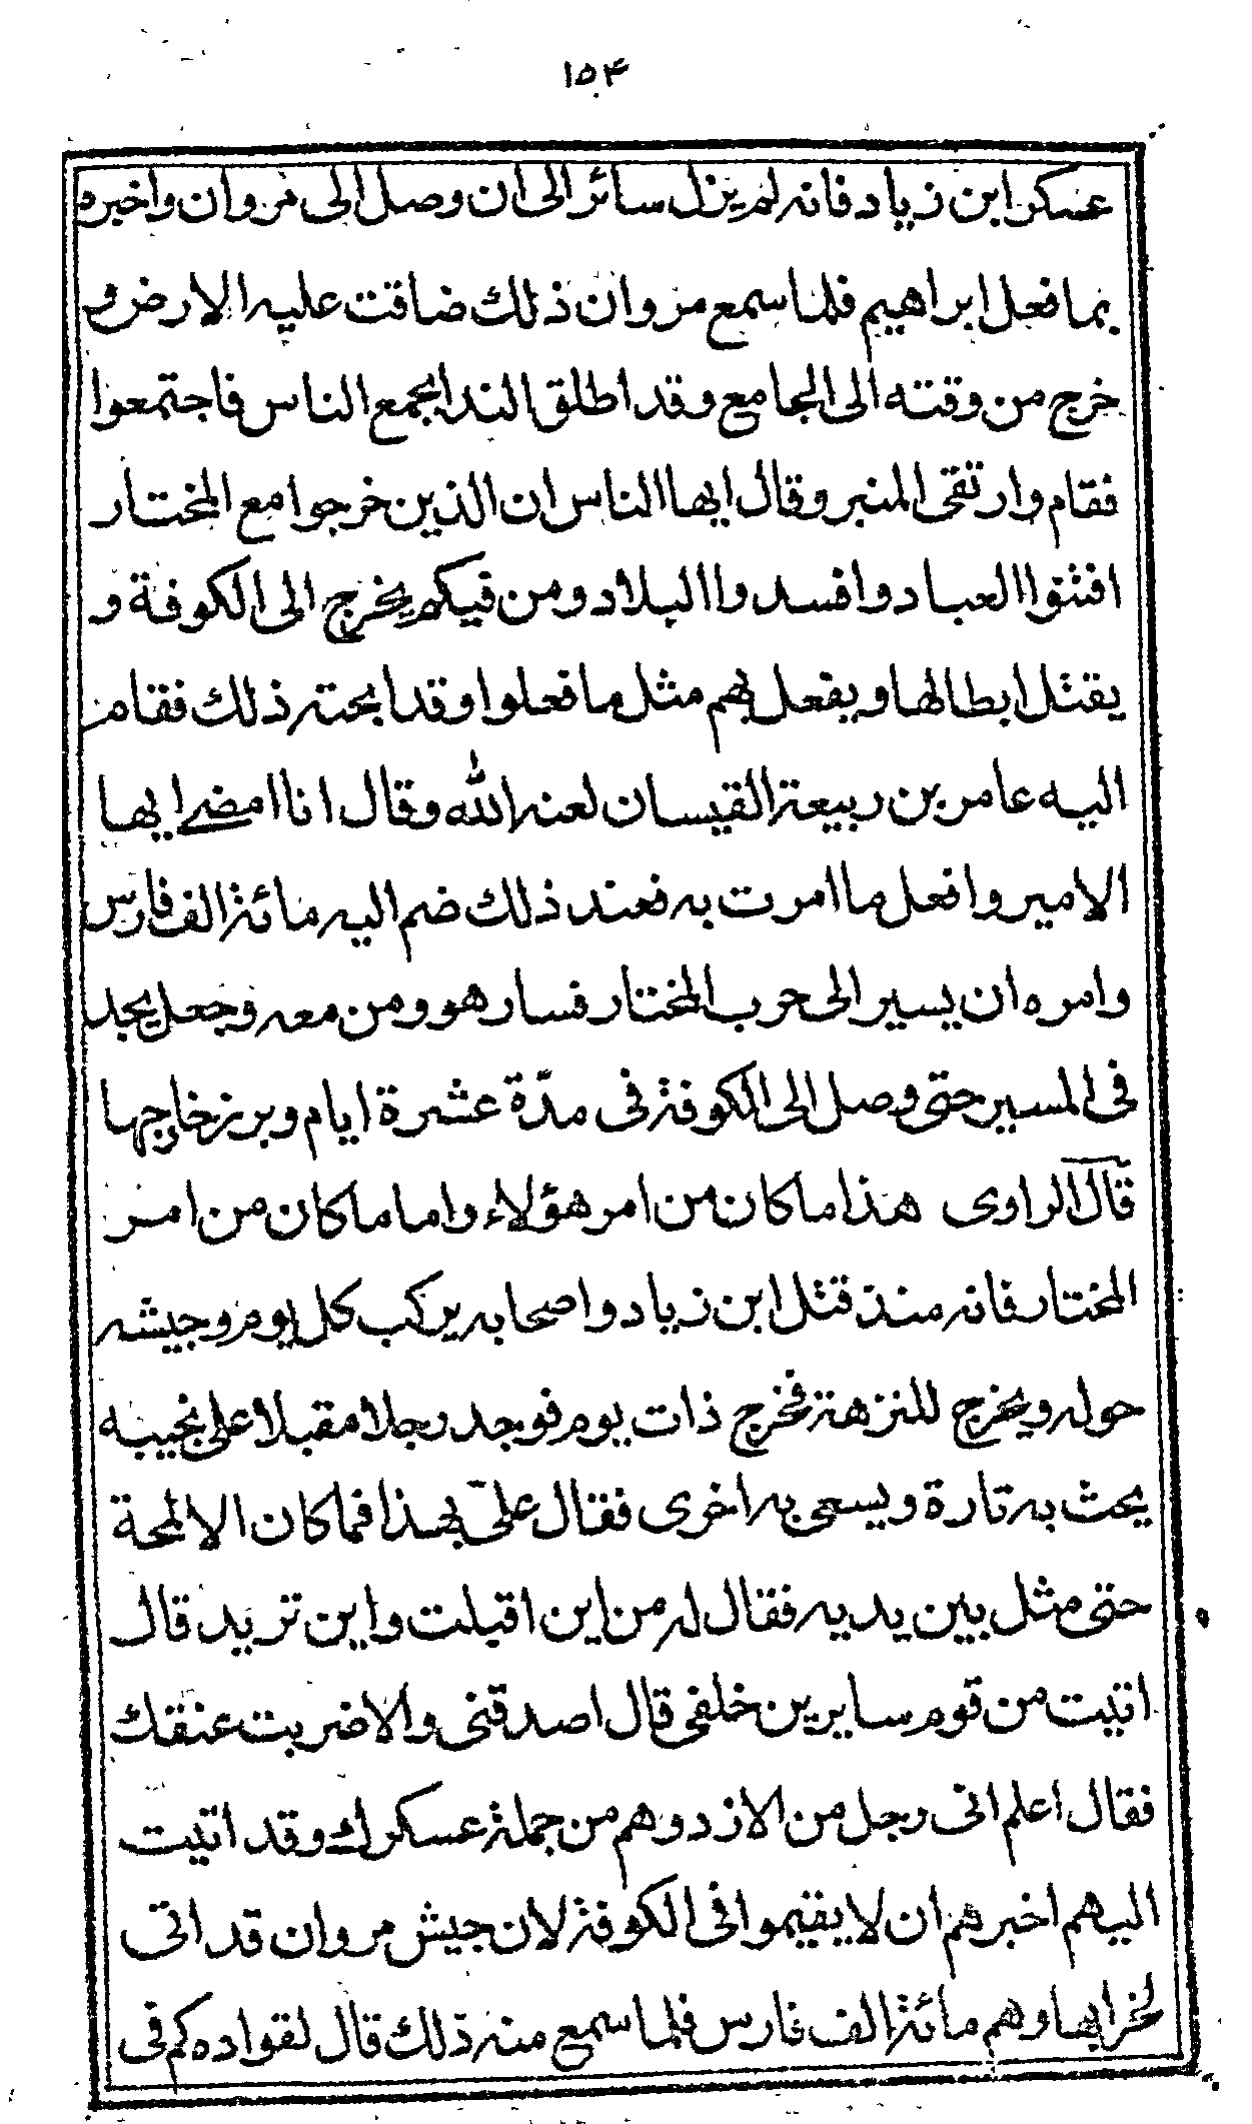 ١٥٤
عسكر ابن زياد فانه لم يزل سائر الى ان وصل الى مروان واخبره
بما فعل ابراهيم فلما سمع مروان ذلك ضاقت عليه الارض و
خرج من وقته الى الجامع وقد اطلق الندا بجمع الناس فاجتمعوا
فقام وارتقى المنبر وقال ايها الناس ان الذين خرجوا مع المختار
افتنوا العباد وافسدوا البلاد ومن فيكم يخرج الى الكوفة و
يقتل ابطالها ويفعل بهم مثل ما فعلوا وقد ابحته ذلك فقام
اليه عامر بن ربيعة القيسان لعنه الله وقال انا امضى ايها
الامير وافعل ما امرت به فعند ذلك ضم اليه مائة الف فارس
وامره ان يسير الى حرب المختار فسار هو ومن معه وجعل يجد
فى المسير حتى وصل الى الكوفة فى مدّة عشرة ايام وبرز خارجها
قال الراوى هذا ما كان من امر هؤلاء واما ما كان من امر
المختار فانه منذ قتل ابن زياد واصحابه يركب كل يوم وجيشه
حوله ويخرج للنزهة فخرج ذات يوم فوجد رجلا مقبلا على نجيبه
يحث به تارة ويسعى به اخرى فقال علىّ بهذا فما كان الا لمحة
حتى مثل بين يديه فقال له من اين اقبلت واين تريد قال
اتيت من قوم سايرين خلفى قال اصدقنى والا ضربت عنقك
فقال اعلم انى رجل من الازد وهم من جملة عسكرك وقد اتيت
اليهم اخبرهم ان لا يقيموا فى الكوفة لان جيش مروان قد اتى
لخرابها وهم مائة الف فارس فلما سمع منه ذلك قال لقواده كم فى